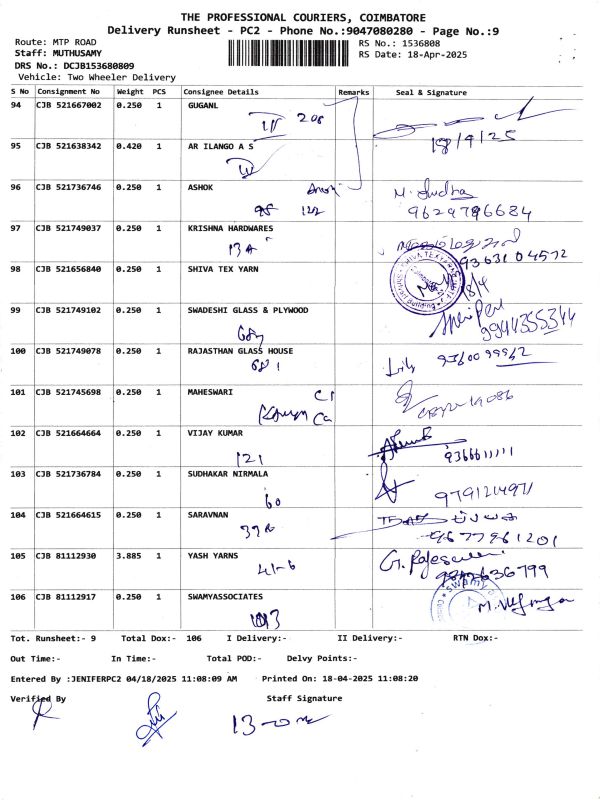 THE PROFESSIONAL COURIERS, COIMBATORE
Delivery Runsheet - PC2 - Phone No.:9047080280 - Page No.:9
Route: MTP ROAD
RS No.: 1536808
Staff: MUTHUSAMY
RS Date: 18-Apr-2025
DRS No.: DCJB153680809
Vehicle: Two Wheeler Delivery
S No Consignment No Weight PCS Consignee Details Remarks Seal & Signature
94 CJB 521667002 0.250 1 GUGANL
208
18/4/25
95 CJB 521638342 0.420 1 AR ILANGO A S
96 CJB 521736746 0.250 1 ASHOK
122
M. Sudha
9629786684
97 CJB 521749037 0.250 1 KRISHNA HARDWARES
13A
9363104572
98 CJB 521656840 0.250 1 SHIVA TEX YARN
18/4
99 CJB 521749102 0.250 1 SWADESHI GLASS & PLYWOOD
9944355344
100 CJB 521749078 0.250 1 RAJASTHAN GLASS HOUSE
681
101 CJB 521745698 0.250 1 MAHESWARI
102 CJB 521664664 0.250 1 VIJAY KUMAR
121
9366611111
103 CJB 521736784 0.250 1 SUDHAKAR NIRMALA
60
9791214971
104 CJB 521664615 0.250 1 SARAVNAN
9677961201
105 CJB 81112930 3.885 1 YASH YARNS
41-6
G. Rajeswari
106 CJB 81112917 0.250 1 SWAMYASSOCIATES
Tot. Runsheet:- 9 Total Dox:- 106 I Delivery:- II Delivery:- RTN Dox:-
Out Time:- In Time:- Total POD:- Delvy Points:-
Entered By :JENIFERPC2 04/18/2025 11:08:09 AM Printed On: 18-04-2025 11:08:20
Verified By Staff Signature